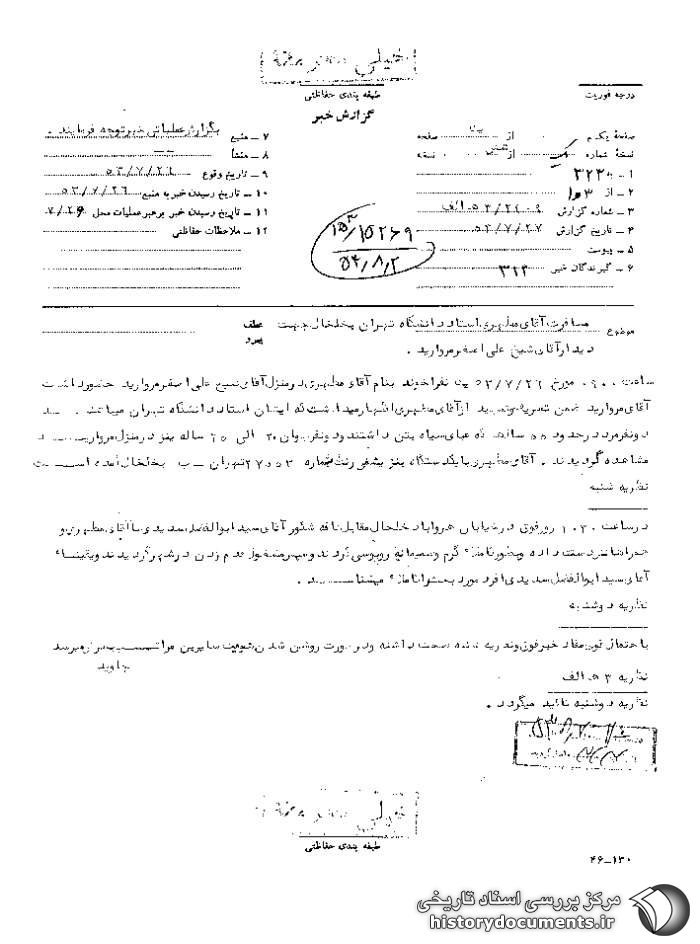 خیلی محرمانه
طبقه بندی حفاظتی
گزارش خبر
درجه فوریت
صفحهٔ یکم از صفحه
نسخهٔ شماره یک از نسخه
۱ - به ۳۲۲
۲ - از ۳ ه۱
۳ - شماره گزارش ۵۳/۲۲۰۹ ه الف
۴ - تاریخ گزارش ۵۳/۷/۲۷
۵ - پیوست
۶ - گیرندگان خبر ۳۱۲
۷ - منبع بگزارش عملیاتی خبر توجه فرمایند.
۸ - منشأ
۹ - تاریخ وقوع ۵۳/۷/۲۶
۱۰ - تاریخ رسیدن خبر به منبع ۵۳/۷/۲۶
۱۱ - تاریخ رسیدن خبر برهبر عملیات محل ۷/۲۶
۱۲ - ملاحظات حفاظتی
۱۵۲۶۹
۵۳/۸/۲
موضوع مسافرت آقای مطهری استاد دانشگاه تهران بخلخال جهت
دیدار آقای شیخ علی اصغر مروارید .
عطف
پیرو
ساعت مورخ ۵۳/۷/۲۶ یک نفر آخوند بنام آقای مطهری در منزل آقای شیخ علی اصغر مروارید حضور داشت
آقای مروارید ضمن تعریف و تمجید از آقای مطهری اظهار میداشت که ایشان استاد دانشگاه تهران میباشند
دو نفر مرد در حدود ۵۵ ساله که عبای سیاه بتن داشتند و دو نفر جوان ۲۰ الی ۲۵ ساله نیز در منزل مروارید
مشاهده گردیدند . آقای مطهری با یکدستگاه بنز بنفش رنگ شماره ۲۷۰۵۳ تهران - ب بخلخال آمده است
نظریه شنبه
در ساعت ۱۰۳۰ روز فوق در خیابان هروآباد خلخال مقابل کافه آقای سید ابوالفضل سدیدی با آقای مطهری و
همراهانش دست داده و بطور کاملاً گرم و صمیمانه روبوسی کردند و سپس مشغول قدم زدن در شهر گردیدند و یقیناً
آقای سید ابوالفضل سدیدی افراد مورد بحث را کاملاً میشناسد .
نظریه دوشنبه
با احتمال قوی مفاد خبر فوق و نظریه شنبه صحت داشته و در صورت روشن شدن هویت سایرین مراتب بعرض میرسد
جاوید
نظریه ۳ ه الف
نظریه دوشنبه تائید میگردد .
خیلی محرمانه
طبقه بندی حفاظتی
۴۶-۱۳۰
مرکز بررسی اسناد تاریخی
historydocuments.ir